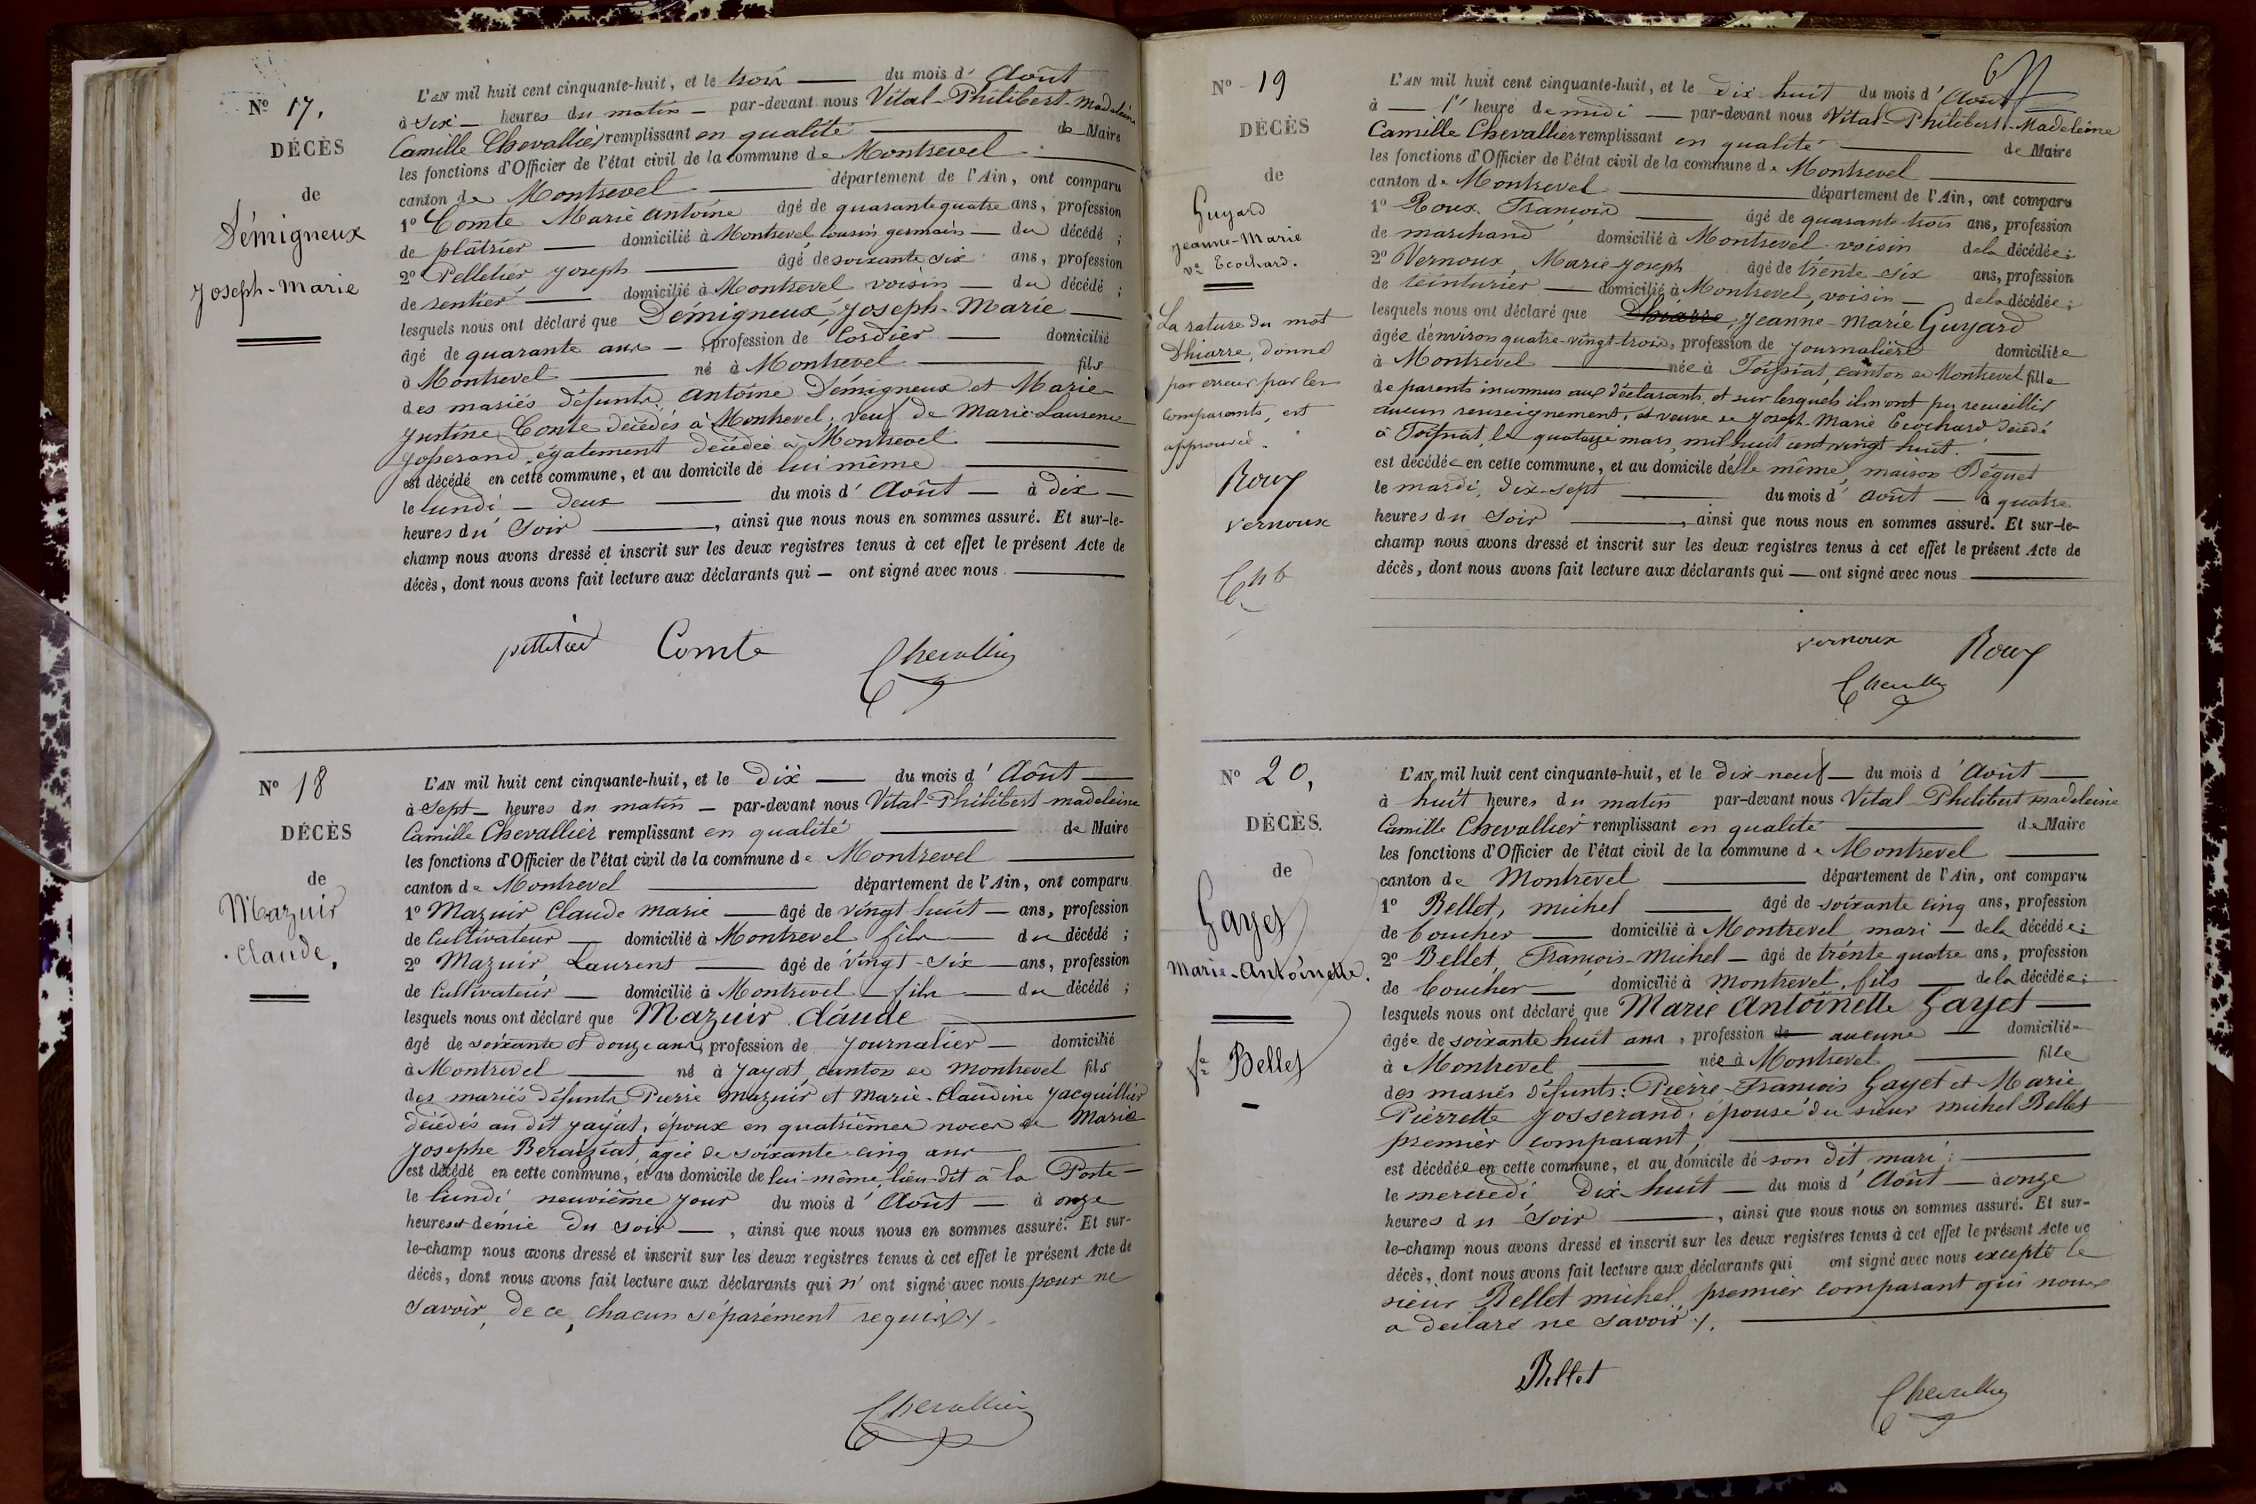 N° 17.
DÉCÈS
de
Démigneux
Joseph-Marie
L'AN mil huit cent cinquante-huit, et le trois du mois d'Août
à six heures du matin par-devant nous Vital-Philibert-Madeleine
Camille Chevallier remplissant en qualité de Maire
les fonctions d'Officier de l'état civil de la commune de Montrevel
canton de Montrevel département de l'Ain, ont comparu
1° Comte Marie Antoine âgé de quarante quatre ans, profession
de plâtrier domicilié à Montrevel cousin germain du décédé ;
2° Pelletier Joseph âgé de soixante six ans, profession
de rentier domicilié à Montrevel voisin du décédé ;
lesquels nous ont déclaré que Démigneux, Joseph-Marie
âgé de quarante ans, profession de Cordier domicilié
à Montrevel né à Montrevel fils
des mariés défunts Antoine Démigneux et Marie-
Justine Comte décédés à Montrevel, veuf de Marie-Laurence
Josserand également décédée à Montrevel
est décédé en cette commune, et au domicile de lui même
le lundi deux du mois d'Août à dix
heures du soir, ainsi que nous nous en sommes assuré. Et sur-le-
champ nous avons dressé et inscrit sur les deux registres tenus à cet effet le présent Acte de
décès, dont nous avons fait lecture aux déclarants qui — ont signé avec nous.
pelletier Comte Chevallier
N° 18
DÉCÈS
de
Mazuir
Claude.
L'AN mil huit cent cinquante-huit, et le dix du mois d'Août
à sept heures du matin par-devant nous Vital-Philibert-madeleine
Camille Chevallier remplissant en qualité de Maire
les fonctions d'Officier de l'état civil de la commune de Montrevel
canton de Montrevel département de l'Ain, ont comparu
1° Mazuir Claude marie âgé de vingt huit ans, profession
de Cultivateur domicilié à Montrevel fils du décédé ;
2° Mazuir, Laurent âgé de vingt-six ans, profession
de Cultivateur domicilié à Montrevel fils du décédé ;
lesquels nous ont déclaré que Mazuir Claude
âgé de soixante et douze ans, profession de Journalier domicilié
à Montrevel né à Jayat, canton de Montrevel fils
des mariés défunts Pierre Mazuir et Marie-Claudine Jacquillier
décédés au dit Jayat, époux en quatrièmes noces de Marie
Josephe Beraiziat, agée de soixante cinq ans
est décédé en cette commune, et au domicile de lui-même, lieu dit à la Porte
le lundi neuvième jour du mois d'Août à onze
heures et demie du soir, ainsi que nous nous en sommes assuré. Et sur-
le-champ nous avons dressé et inscrit sur les deux registres tenus à cet effet le présent Acte de
décès, dont nous avons fait lecture aux déclarants qui n'ont signé avec nous pour ne
savoir, de ce, chacun séparément requis
Chevallier
N° 19
DÉCÈS
de
Guyard
Jeanne-Marie
ve Ecochard.
La rature du mot
Dhiarre, donné
par erreur par les
comparants, est
approuvée.
Roux
vernoux
L'AN mil huit cent cinquante-huit, et le dix-huit du mois d'Août
à l'heure de midi par-devant nous Vital-Philibert-Madeleine
Camille Chevallier remplissant en qualité de Maire
les fonctions d'Officier de l'état civil de la commune de Montrevel
canton de Montrevel département de l'Ain, ont comparu
1° Roux, François âgé de quarante-trois ans, profession
de marchand domicilié à Montrevel voisin de la décédée ;
2° Vernoux, Marie-Joseph âgé de trente-six ans, profession
de teinturier domicilié à Montrevel, voisin de la décédée ;
lesquels nous ont déclaré que Dhiarre, Jeanne-Marie Guyard
âgée d'environ quatre-vingt-trois, profession de journalière domiciliée
à Montrevel née à Foissiat, canton de Montrevel fille
de parents inconnus aux déclarants, et sur lesquels ils n'ont pu recueillir
aucun renseignement, et veuve de Joseph-Marie Ecochard décédé
à Foissiat, le quatorze mars, mil huit cent vingt huit.
est décédée en cette commune, et au domicile d'elle même, maison Béguet
le mardi, dix-sept du mois d'août à quatre
heures du soir, ainsi que nous nous en sommes assuré. Et sur-le-
champ nous avons dressé et inscrit sur les deux registres tenus à cet effet le présent Acte de
décès, dont nous avons fait lecture aux déclarants qui — ont signé avec nous
vernoux Roux
Chevallier
N° 20,
DÉCÈS.
de
Gayet
Marie-Antoinette.
fe Bellet
L'AN mil huit cent cinquante-huit, et le dix-neuf du mois d'Août
à huit heures du matin par-devant nous Vital-Philibert madeleine
Camille Chevallier remplissant en qualité de Maire
les fonctions d'Officier de l'état civil de la commune de Montrevel
canton de Montrevel département de l'Ain, ont comparu
1° Bellet, michel âgé de soixante cinq ans, profession
de boucher domicilié à Montrevel mari de la décédée ;
2° Bellet, François-Michel âgé de trente quatre ans, profession
de boucher domicilié à Montrevel, fils de la décédée ;
lesquels nous ont déclaré que Marie Antoinette Gayet
âgée de soixante huit ans, profession de aucune domiciliée
à Montrevel née à Montrevel fille
des mariés défunts : Pierre-François Gayet et Marie
Pierrette Josserand, épouse du sieur michel Bellet
premier comparant,
est décédée en cette commune, et au domicile de son dit mari ;
le mercredi, dix-huit du mois d'Août à onze
heures du soir, ainsi que nous nous en sommes assuré. Et sur-
le-champ nous avons dressé et inscrit sur les deux registres tenus à cet effet le présent Acte de
décès, dont nous avons fait lecture aux déclarants qui ont signé avec nous excepté le
sieur Bellet michel, premier comparant qui nous
a déclaré ne savoir.
Bellet Chevallier